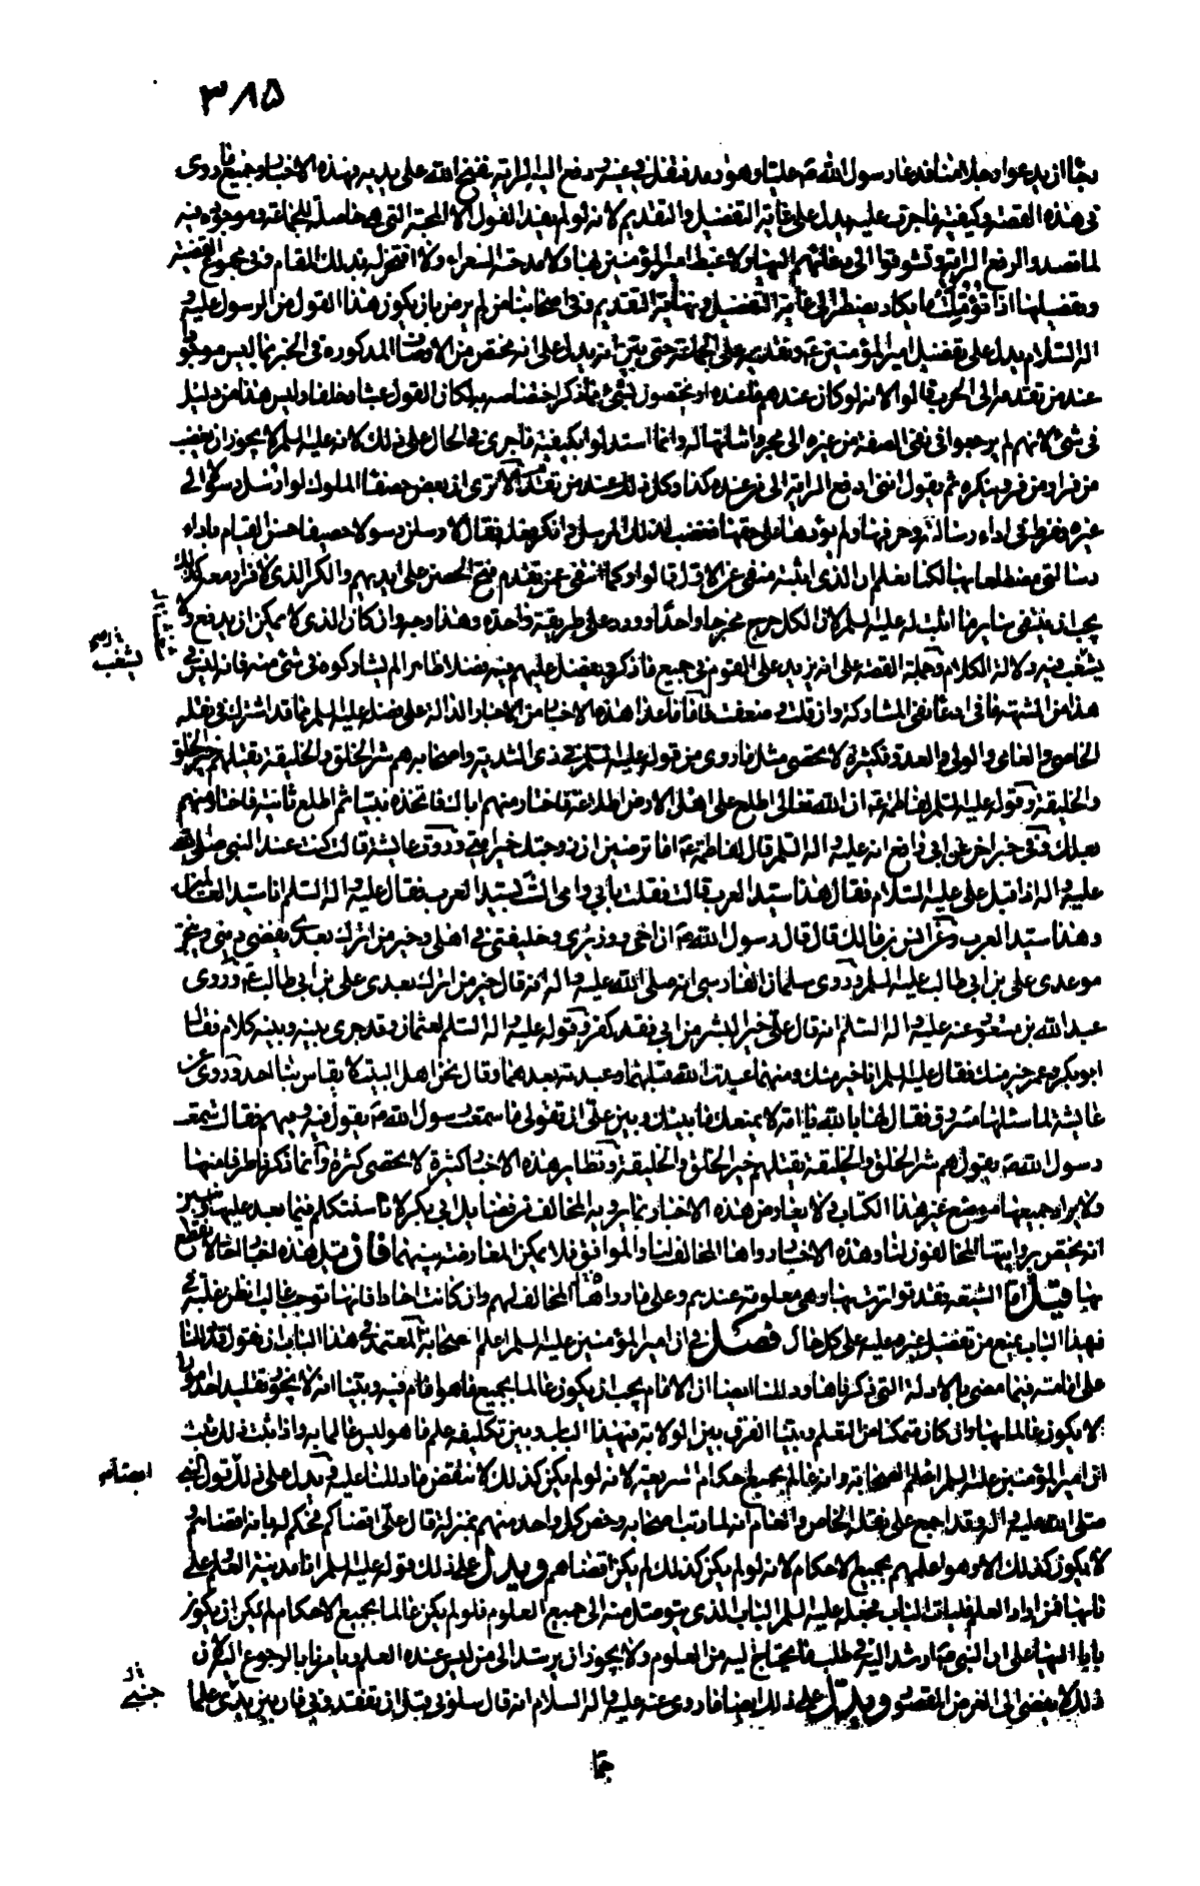 ٣٨٥
رجاء ان يدعو احدا منا فدعا رسول الله ص عليا و هو ارمد فتفل فى عينيه و دفع اليه الراية ففتح الله على يديه فهذه الاخبار و جميع ما روى
فى هذه القصة و كيفية ما جرت عليه يدل على غاية التفضيل و التقديم لانه لو لم يفد القول الا المحبة التى هى حاصلة للجماعة و موجودة فيه
لما تصدوا لدفع الراية و تشوقوا الى دعائهم اليها و لا غبط امير المؤمنين بها و لا مدحته الشعراء و لا افتخر له بذلك المقام و فى مجموع القصة
و تفصيلها اذا تؤملت ما يكاد يضطر الى غاية التفضيل و نهاية التقديم و فى اصحابنا من لم يرض بان يكون هذا القول من الرسول عليه و
اله السلام يدل على تفضيل امير المؤمنين ع و تقديمه على الجماعة حتى بين انه يدل على انه مختص من الاوصاف المذكورة فى الخبر بما ليس موجودا
عند من تقدمه الى الحرب قالوا لانه لو كان عندهم ما عنده او يختصون بشئ ما ذكر اختصاصه به لكان القول عبثا و خلفا و ليس هذا من دليل
فى شئ لانهم لم يرجعوا فى نفى الصفة من غيره الى مجرد اثباتها له و انما استدلوا بكيفية ما جرى فى الحال على ذلك لانه عليه السلم لا يجوز ان يغضب
من فرار من فر و ينكره ثم يقول اننى ادفع الراية الى من عنده كذا و كذا و ذلك عند من تقدم الا ترى ان بعض حصفاء الملوك لو ارسل رسولا الى
غيره ففرط فى اداء رسالته و حرفها و لم يؤدها على حقها فغضب لذلك المرسل و انكر فعله فقال لارسلن رسولا حصيفا حسن القيام باداء
رسالتى مضطلعا بها لكنا نعلم ان الذى اثبته منفى عن الاول قالوا و كما انتفى عمن تقدم فتح الحصن على ايديهم و الكر الذى لا فرار معه كذلك
يجب ان ينتفى سائر ما اثبت له عليه السلم لان الكل خرج مخرجا واحدا و ورد على طريقة واحدة و هذا وجه و ان كان الذى لا يمكن ان يدفع و لا
يشغب فيه دلالة الكلام و جملة القصة على انه يزيد على القوم فى جميع ما ذكر و يفضل عليهم فيه فضلا ظاهرا لم يشاركوه فى شئ منه فانه ليس
هذا من المشتهر ما فى ادعاء نفى المشاركة و ان قلت و ضعفت فاما ما عدا هذه الاخبار من الاخبار الدالة على فضله عليه السلم مما قد اشترك فى نقله
الخاصى و العامى و الولى و العدو فكثيرة لا تحصى مثل ما روى من قوله عليه السلم فى ذى الثدية و اصحابه هم شر الخلق و الخليقة يقتلهم خير الخلق
و الخليقة و قوله عليه السلم لفاطمة ع ان الله تعالى اطلع على اهل الارض اطلاعة فاختار منهم اباك فاتخذه نبيا ثم اطلع ثانية فاختار منهم
بعلك و فى خبر اخر عن ابى رافع انه عليه و اله السلم قال لفاطمة ع اما ترضين ان زوجتك خير امتى و روت عايشة قالت كنت عند النبى صلى الله
عليه و اله اذ اقبل على عليه السلام فقال هذا سيد العرب قالت فقلت بابى و امى الست سيد العرب فقال عليه و اله السلم انا سيد العالمين
و هذا سيد العرب و عن انس بن مالك قال قال رسول الله ص ان اخى و وزيرى و خليفتى فى اهلى و خير من اترك بعدى يقضى دينى و ينجز
موعدى على بن ابى طالب عليه السلم و روى سلمان الفارسى انه صلى الله عليه و اله انه قال خير من اترك بعدى على بن ابى طالب ع و روى
عبد الله بن مسعود عنه عليه و اله السلم انه قال على خير البشر من ابى فقد كفر و قوله عليه و اله السلم لعثمان و قد جرى بينه و بينه كلام فقال
ابو بكر و عمر خير منك فقال عليه السلم انا خير منك و منهما عبدت الله قبلهما و عبدته بعدهما و قال نحن اهل البيت لا يقاس بنا احد و روى عن
عائشة لما سئلها مسروق فقال لها بالله يا امه لا يمنعك ما بينك و بين على ان تقولى ما سمعت رسول الله ص يقول فيه و فيهم فقالت سمعت
رسول الله ص يقول هم شر الخلق و الخليقة يقتلهم خير الخلق و الخليقة و نظاير هذه الاخبار كثيرة لا تحصى كثرة و انما ذكرنا طرفا منها
و لايراد جميعها موضع غير هذا الكتاب و لا يعارض هذه الاخبار بما يرويه المخالف من فضايل ابى بكر لانا سنتكلم فيما بعد عليها و نبين
انه يختص بروايتها المخالفون لنا و هذه الاخبار رواها المخالف لنا و الموافق فلا يمكن المعارضة بينهما فان قيل هذه اخبار احاد لا يقطع
بها قيل اما الشيعة فقد تواترت بها و هى معلومة عندهم و على ما رواها المخالف لهم و ان كانت احادا فانها توجب غالب الظن و غلبته فى
فهذا الباب يمنع من تفضيل غيره عليه على كل حال فصل فى ان امير المؤمنين عليه السلم اعلم الصحابة المعتمد فى هذا الباب ان نقول قد دللنا
على امامته فيما مضى بالادلة التى ذكرناها و دللنا ايضا ان الامام يجب ان يكون عالما بجميع ما هو امام فيه و بينا انه لا يجوز تقليد احد امورا
لا يكون عالما بها و ان كان متمكنا من التعلم و بينا الفرق بين الولاية فى هذا الباب و بين تكليفه علم ما هو ليس عالما به و اذا ثبت ذلك ثبت
ان امير المؤمنين عليه السلم اعلم الصحابة و انه عالم بجميع احكام الشريعة لانه لو لم يكن كذلك لانتقض ما دللنا عليه و يدل على ذلك قول النبى
صلى الله عليه و اله و قد اجمع على نقله الخاص و العام انه لما رتب اصحابه و خص كل واحد منهم بمنزلة قال على اقضاكم فحكم له بانه اقضاهم و
لا يكون كذلك الا و هو اعلمهم بجميع الاحكام لانه لو لم يكن كذلك لم يكن اقضاهم و يدل على ذلك قوله عليه السلم انا مدينة العلم و على
بابها فمن اراد العلم فليات الباب فجعله عليه السلم الباب الذى يتوصل منه الى جميع العلوم فلو لم يكن عالما بجميع الاحكام لم يكن ان يكون
بابا اليها على ان النبى ص ارشد اليه فى طلب ما يحتاج اليه من العلوم و لا يجوز ان يرشد الى من ليس عنده العلم و يامرنا بالرجوع اليه لان
ذلك لا يفضى الى الغرض المقصود و يدل على ذلك ايضا ما روى عنه عليه و اله السلام انه قال سلونى قبل ان تفقدونى فان بين جنبى علما
يشغب
ايضا
جنبى
جما